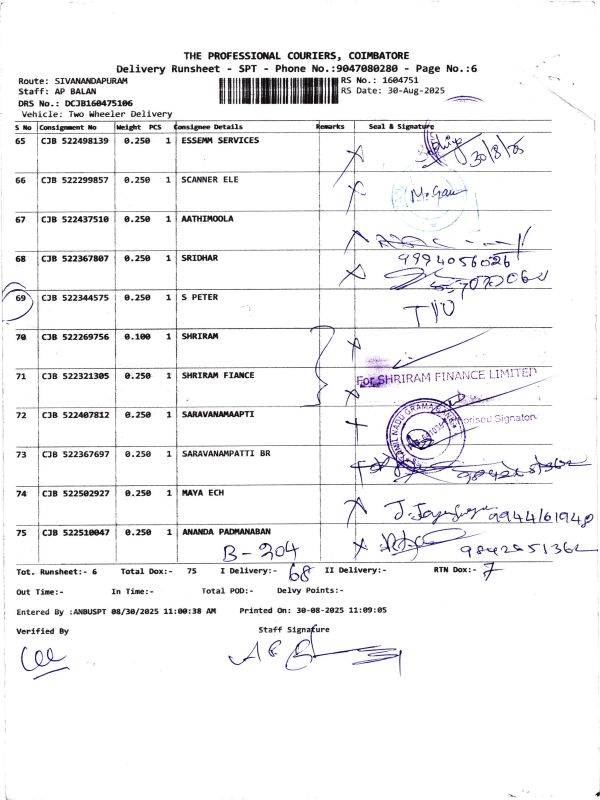 THE PROFESSIONAL COURIERS, COIMBATORE
Delivery Runsheet - SPT - Phone No.:9047080280 - Page No.:6
Route: SIVANANDAPURAM RS No.: 1604751
Staff: AP BALAN RS Date: 30-Aug-2025
DRS No.: DCJB160475106
Vehicle: Two Wheeler Delivery
S No Consignment No Weight PCS Consignee Details Remarks Seal & Signature
65 CJB 522498139 0.250 1 ESSEMM SERVICES
30/8/25
66 CJB 522299857 0.250 1 SCANNER ELE
67 CJB 522437510 0.250 1 AATHIMOOLA
68 CJB 522367807 0.250 1 SRIDHAR 9994056026
69 CJB 522344575 0.250 1 S PETER
70 CJB 522269756 0.100 1 SHRIRAM
71 CJB 522321305 0.250 1 SHRIRAM FIANCE For SHRIRAM FINANCE LIMITED
72 CJB 522407812 0.250 1 SARAVANAMAAPTI Authorised Signatory
TAMIL NADU GRAMA BANK
73 CJB 522367697 0.250 1 SARAVANAMPATTI BR
74 CJB 522502927 0.250 1 MAYA ECH 9944161940
75 CJB 522510047 0.250 1 ANANDA PADMANABAN
B-204 9842851362
Tot. Runsheet:- 6 Total Dox:- 75 I Delivery:- 68 II Delivery:- RTN Dox:- 7
Out Time:- In Time:- Total POD:- Delvy Points:-
Entered By :ANBUSPT 08/30/2025 11:00:38 AM Printed On: 30-08-2025 11:09:05
Verified By Staff Signature